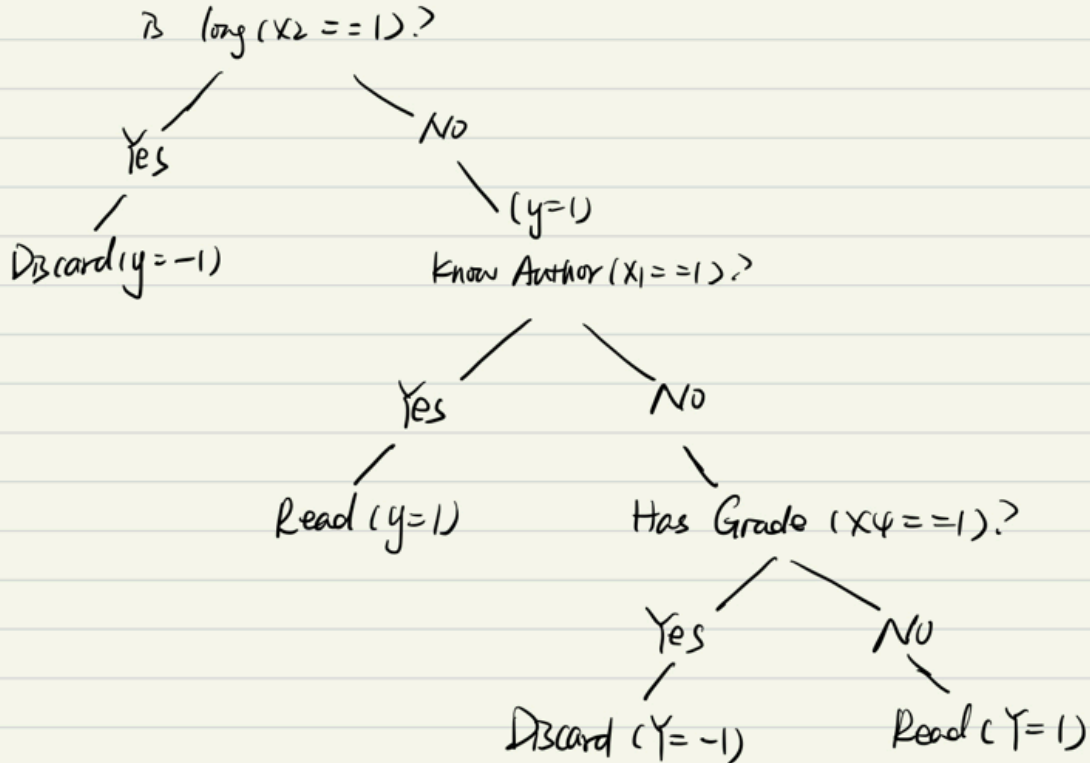 Is long (X2 == 1)?
Yes
No
(y=1)
Discard (y=-1)
Know Author (X1 == 1)?
Yes
No
Read (y=1)
Has Grade (X4 == 1)?
Yes
No
Discard (Y=-1)
Read (Y=1)